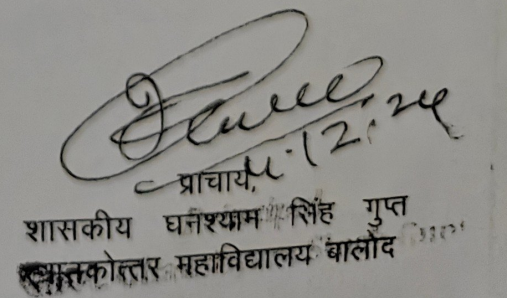 11.12.24
प्राचार्य,
शासकीय घनश्याम सिंह गुप्त
स्नातकोत्तर महाविद्यालय बालोद